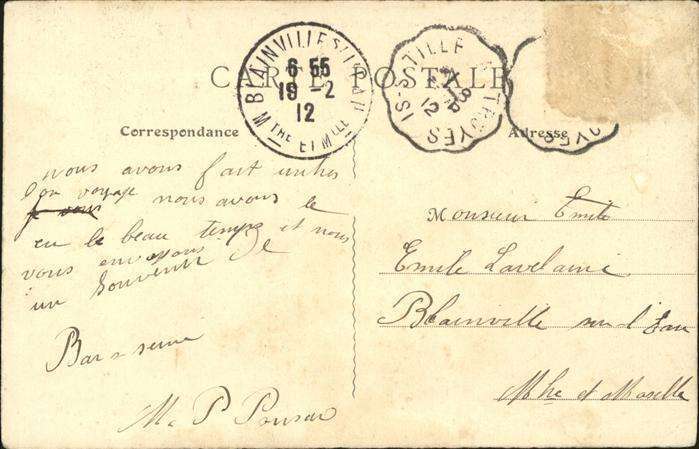 CARTE POSTALE
BLAINVILLE S/ L'EAU
6 55
19 -2
12
Mthe ET MLLE
IS-S-TILLE A TROYES
12
OYES
Correspondance
Adresse
nous avons fait un très
bon voyage nous avons
eu le beau temps et nous
vous envoyons
un Souvenir De
Bar s seine
M. P
Monsieur Emile
Emile
Blainville sur l'Eau
Mthe et Moselle